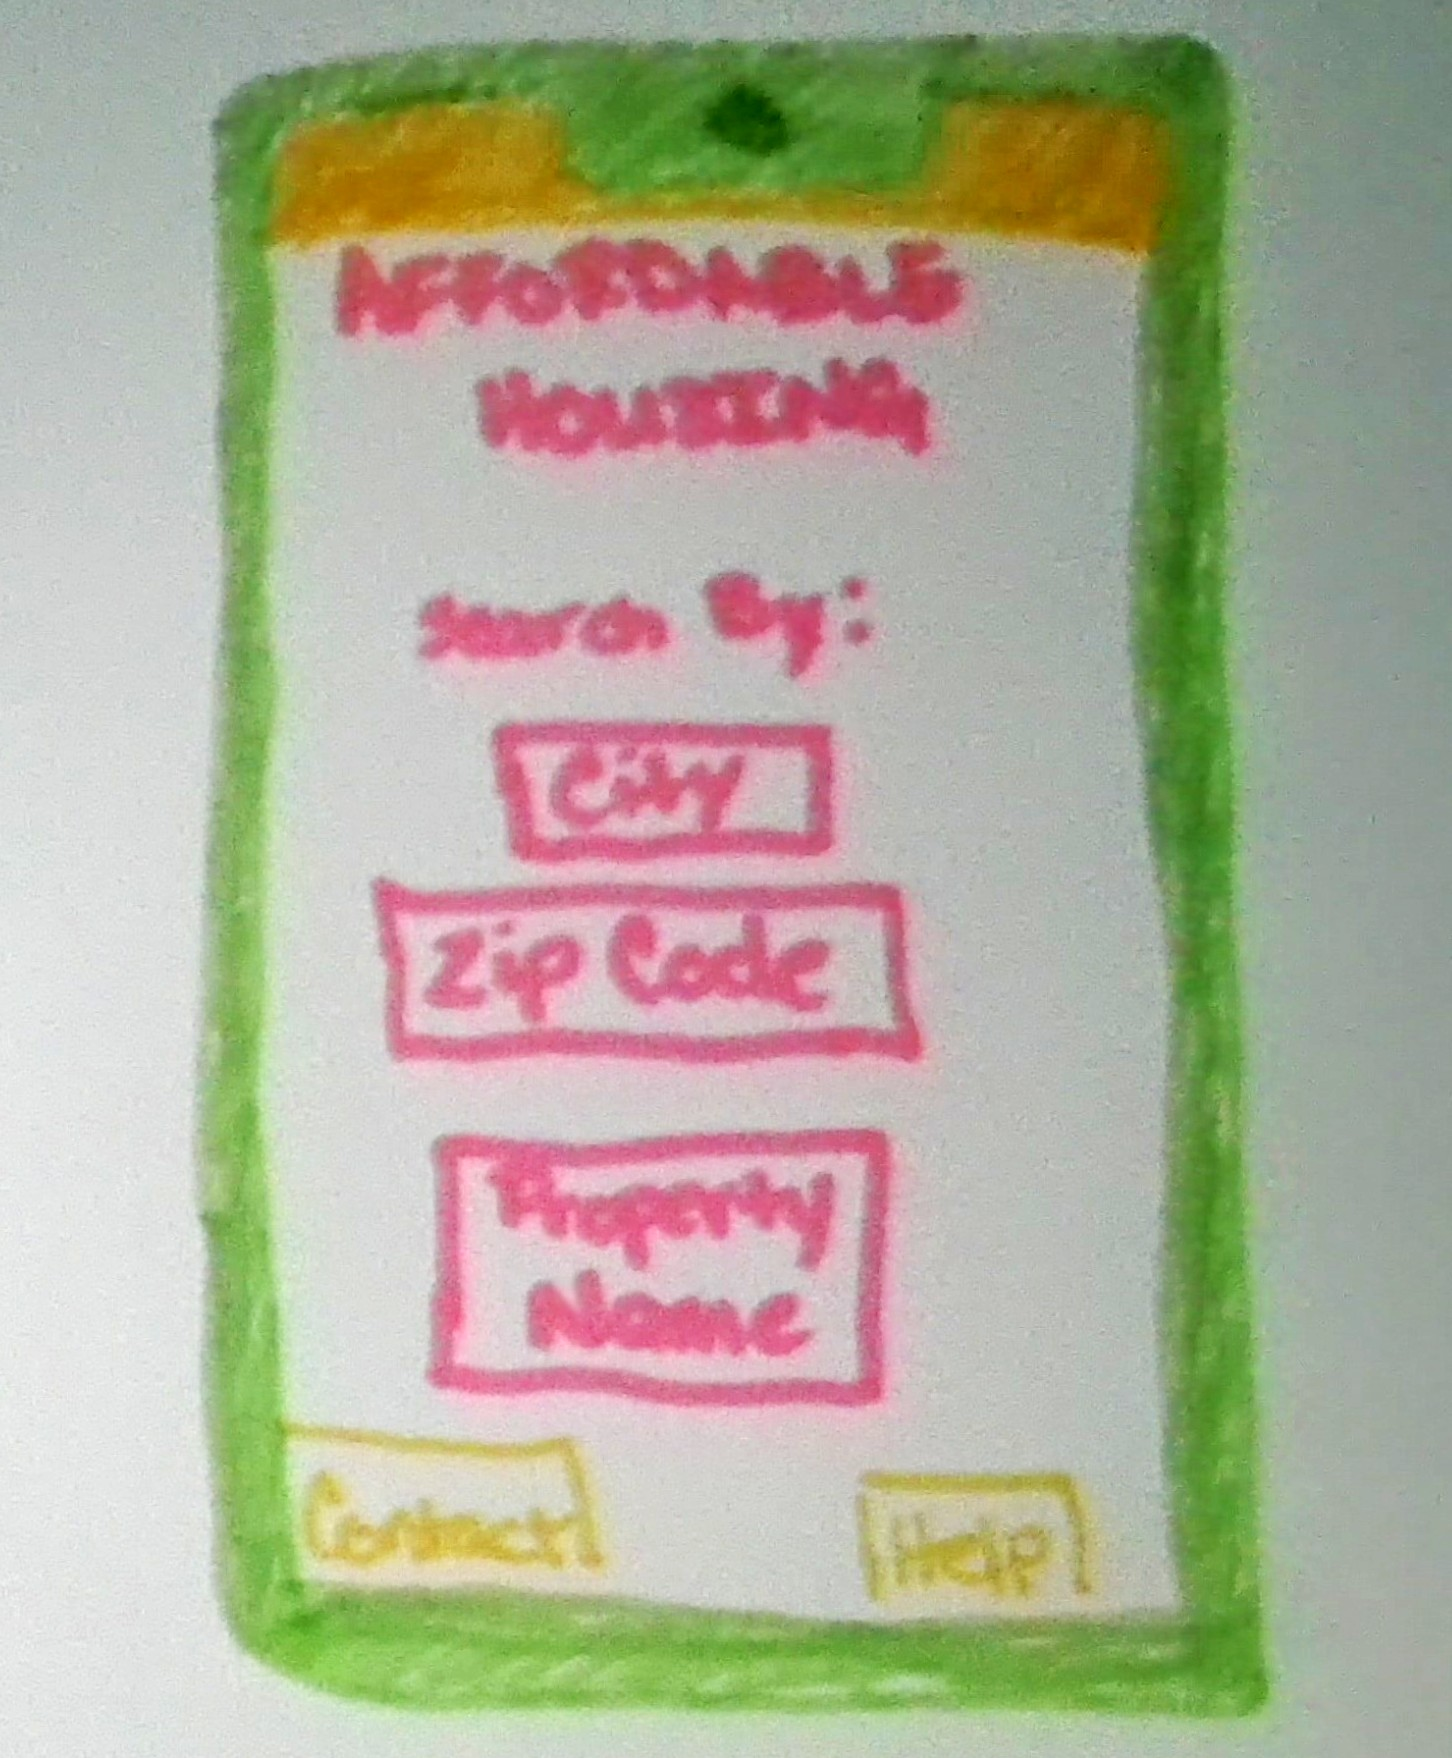 AFFORDABLE
HOUSING
Search By:
City
Zip Code
Property
Name
Contact
Help